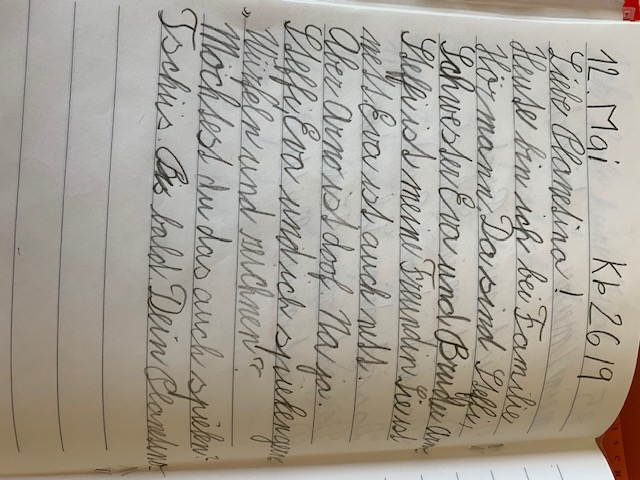 12. Mai Kb 26/9
Liebe Clanetina!
Heute bin ich bei Familie
Hörmann Da sind Steffi,
Schwester Eva und Bruder
Steffi ist meine Freundin Sie ist
nett Eva ist auch nett.
Aber Arno ist doof Na ja.
Steffi Eva und ich spielen gern
"Würfeln und zeichnen"
Möchtest du das auch spielen?
Tschüs. Bis bald Dein Clanetino